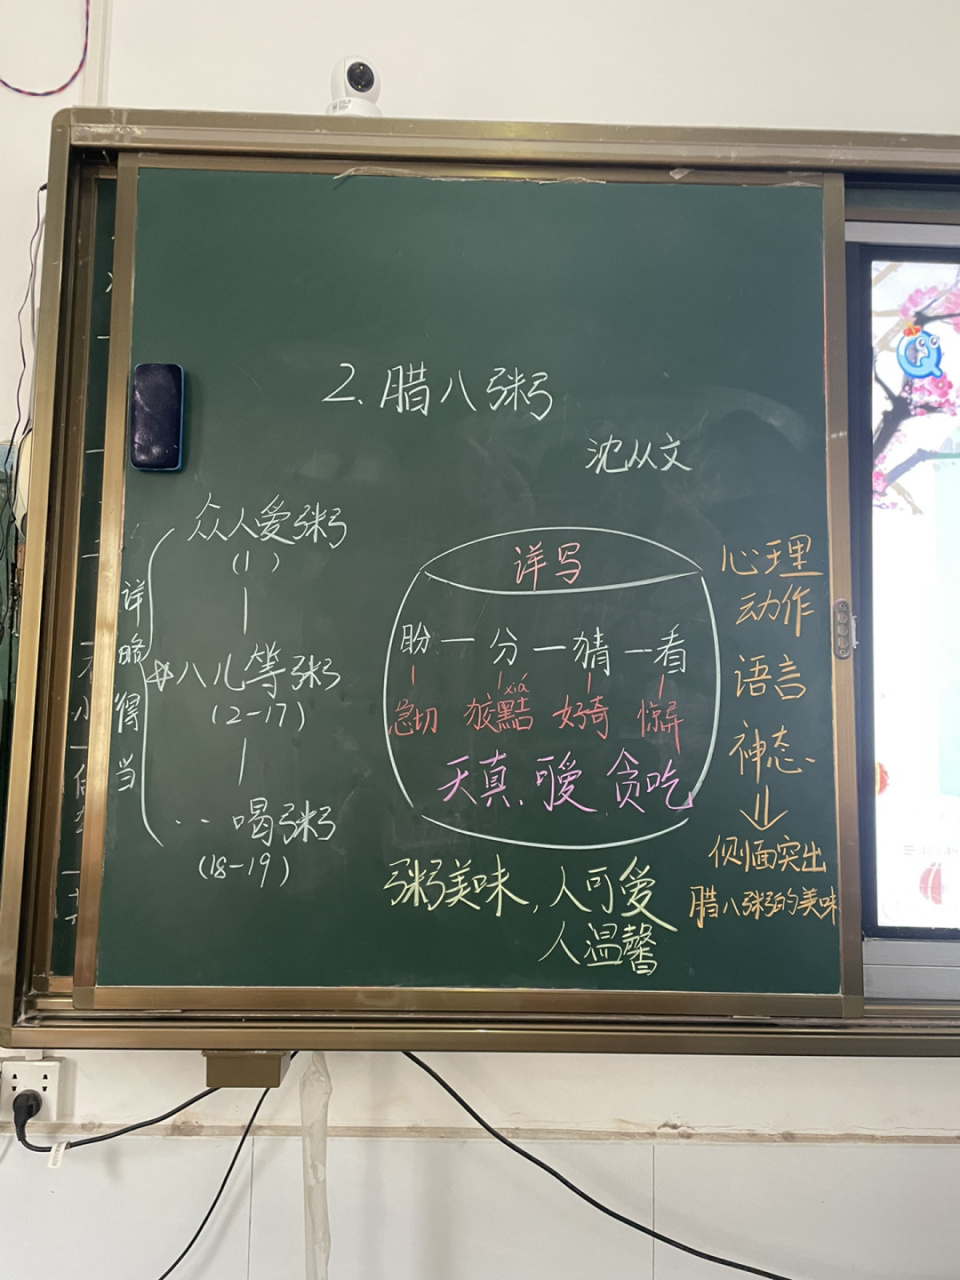 2.腊八粥
沈从文
众人爱粥
(1)
八儿等粥
(2-17)
喝粥
(18-19)
详略得当
详写
盼—分—猜—看
xiá
急切 狡黠 好奇 惊异
天真、可爱、贪吃
粥美味,人可爱
人温馨
心理
动作
语言
神态、
侧面突出
腊八粥的美味